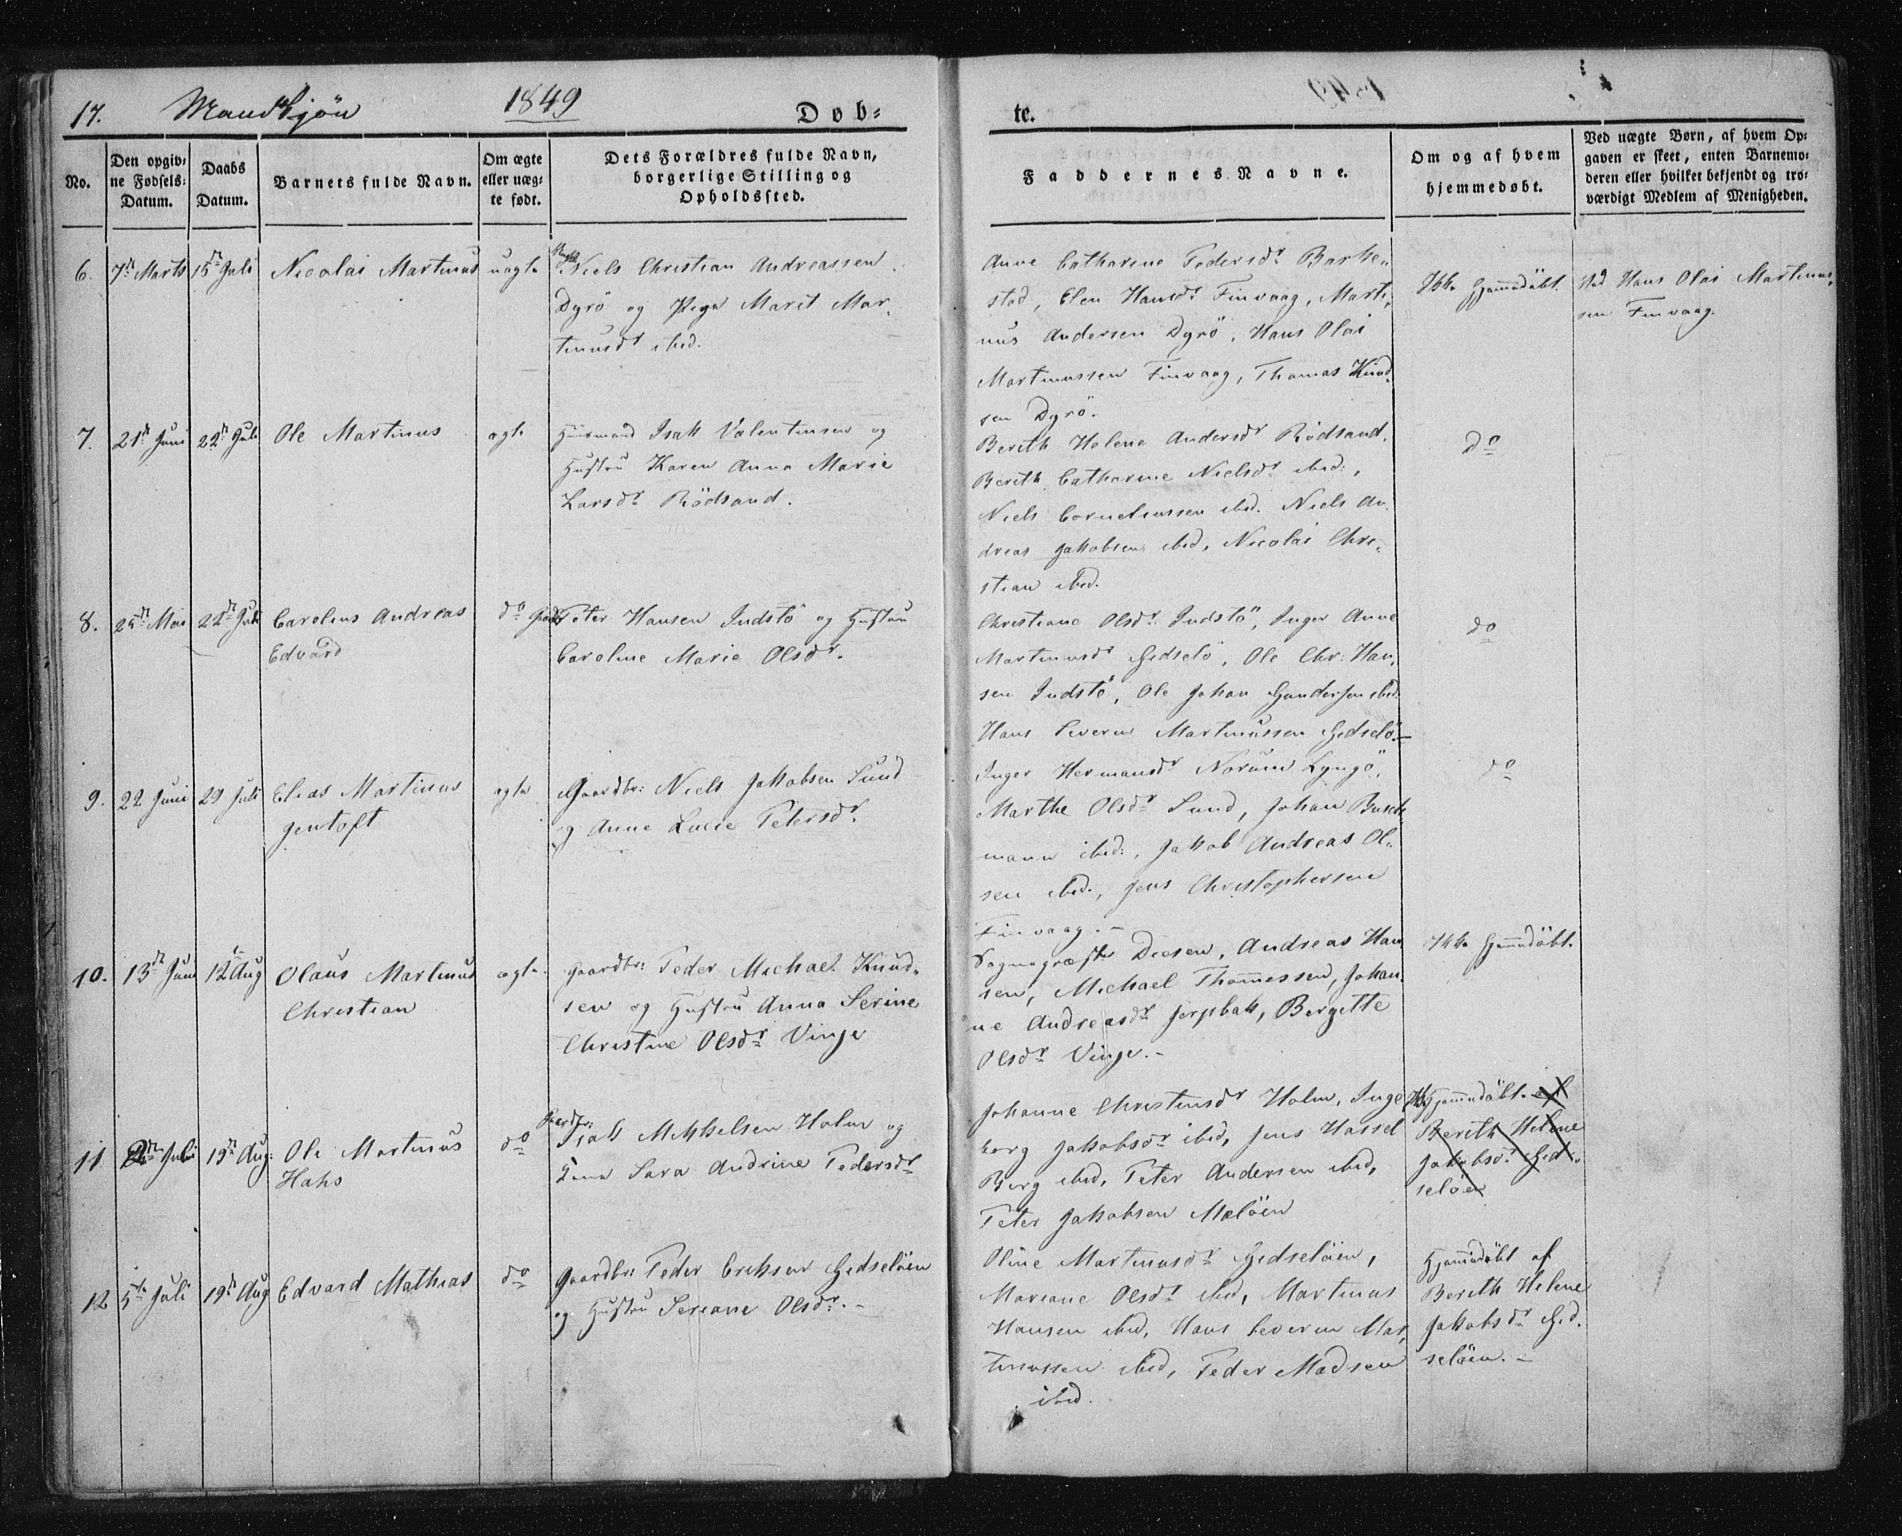 17. Mandkjøn 1849 Dob-
te.
No.
Den opgiv-
ne Fødsels-
Datum.
Daabs
Datum.
Barnets fulde Navn.
Om ægte
eller uæg-
te født.
Dets Forældres fulde Navn,
borgerlige Stilling og
Opholdssted.
Faddernes Navne.
Om og af hvem
hjemmedøbt.
Ved uægte Børn, af hvem Op-
gaven er skeet, enten Barnemo-
deren eller hvilket bekjendt og tro-
værdigt Medlem af Menigheden.
6. 7de Marts 15de Juli Nicolai Martinus uægte
Niels Christian Andreassen
Dyrö og Pige Marit Mar-
tinusdr ibid.
Anne Catharine Pedersdr Barke-
stad, Elen Hansdr Finvaag, Marti-
nus Andersen Dyrö, Hans Olai
Martinussen Finvaag, Thomas Knud-
sen Dyrö.
Ikke hjemmedöbt.
Ved Hans Olai Martinus-
sen Finvaag.
7. 21de Juni 22de Juli Ole Martinus ægte
Huusmand Isak Valentinsen og
Hustru Karen Anna Marie
Larsdr Rödsand.
Bereth Helene Andersdr Rödsand,
Bereth Catharine Nielsdr ibid.,
Niels Corneliussen ibid. Niels An-
dreas Jakobsen ibid, Nicolai Chri-
stian ibid.
do
8. 25de Mai 22de Juli Carolius Andreas
Edvard
do Gaardbr Peter Hansen Indstö og Hustru
Caroline Marie Olsdr.
Christiane Olsdr Indstö, Inger Anne
Martinusdr Gidselö, Ole Chr. Han-
sen Indstö, Ole Johan Gundersen ibid.
Hans Severin Martinussen Gidselö.
do
9. 22 Juni 29 Juli Elias Martinus
Jentoft
ægte Gaardbr: Niels Jakobsen Sund
og Anne Lucie Petersdr.
Inger Hermansdr Norum Lyngö,
Marthe Olsdr Sund, Johan Busch
mann ibid., Jakob Andreas Ol-
sen ibid., Jens Christophersen
Finvaag.
do
10. 13de Juni 12te Aug Olaus Martinus
Christian
ægte. Gaardbr: Peder Michael Knud-
sen og Hustru Anna Serine
Christine Olsdr Vinje
Sognepræst Diesen, Andreas Han
sen, Michael Thomessen, Johan-
ne Andreasdr Jerpbak, Bergitte
Olsdr Vinje.
Ikke hjemmedöbt.
11 2den Juli 19de Aug: Ole Martinus
Hans
do Gaardbr: Isak Mikkelsen Holm og
Kone Sara Andrine Pedersdr
Johanne Christensdr Holm, Inge
borg Jakobsdr ibid, Jens Hassel
Berg ibid, Peter Andersen ibid,
Peter Jakobsen Melöen
Ikke hjemmedöbt. af
Bereth Helene
Jakobsdr Gid-
selöen
12 5te Juli 19de Aug Edvard Mathias
do Gaardbr: Peder Eriksen Gidselöen
og Hustru Seriane Olsdr.
Oline Martinusdr Gidselöen,
Mariane Olsdr ibid, Martinus
Hansen ibid, Hans Severin Mar-
tinussen ibid, Peder Madsen
ibid.
Hjemmedöbt af
Bereth Helene
Jakobsdr Gid-
selöen.